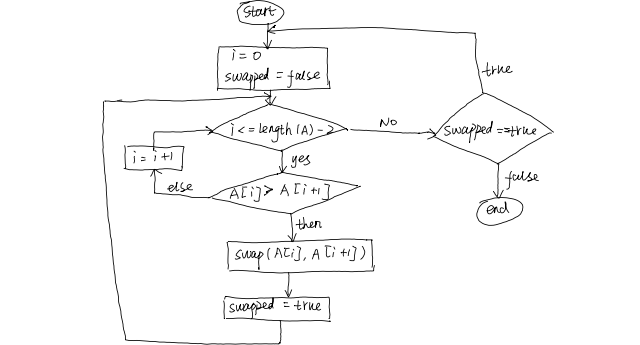 start
i = 0
swapped = false
i <= length(A) - 2
No
swapped == true
true
false
end
yes
i = i + 1
else
A[i] > A[i+1]
then
swap(A[i], A[i+1])
swapped = true